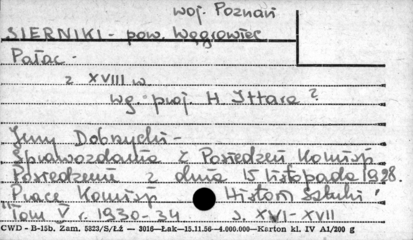 woj. Poznań
SIERNIKI - pow. Wągrowiec
Pałac -
z XVIII w.
wg. proj. H. Ittara ?
Jerzy Dobrzycki -
Sprawozdania z Posiedzeń Komisji
Posiedzenie z dnia 15 listopada 1928.
"Prace Komisji Historii Sztuki"
Tom V r. 1930-34 s. XVI-XVII
CWD - B-15b. Zam. 5823/S/ŁŻ — 3016—Łak—15.11.56—4.000.000—Karton kl. IV A1/200 g